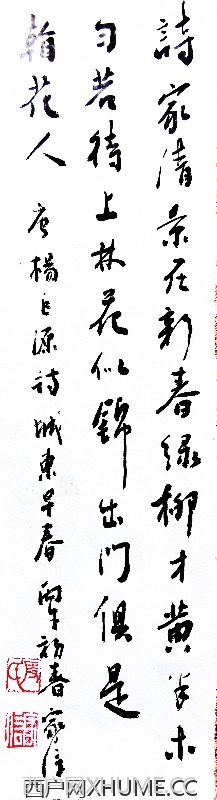 詩家清景在新春綠柳才黃半未
勻若待上林花似錦出門俱是
花人 唐楊巨源詩城東早春 丙午初春 家
西户网XHUME.CC